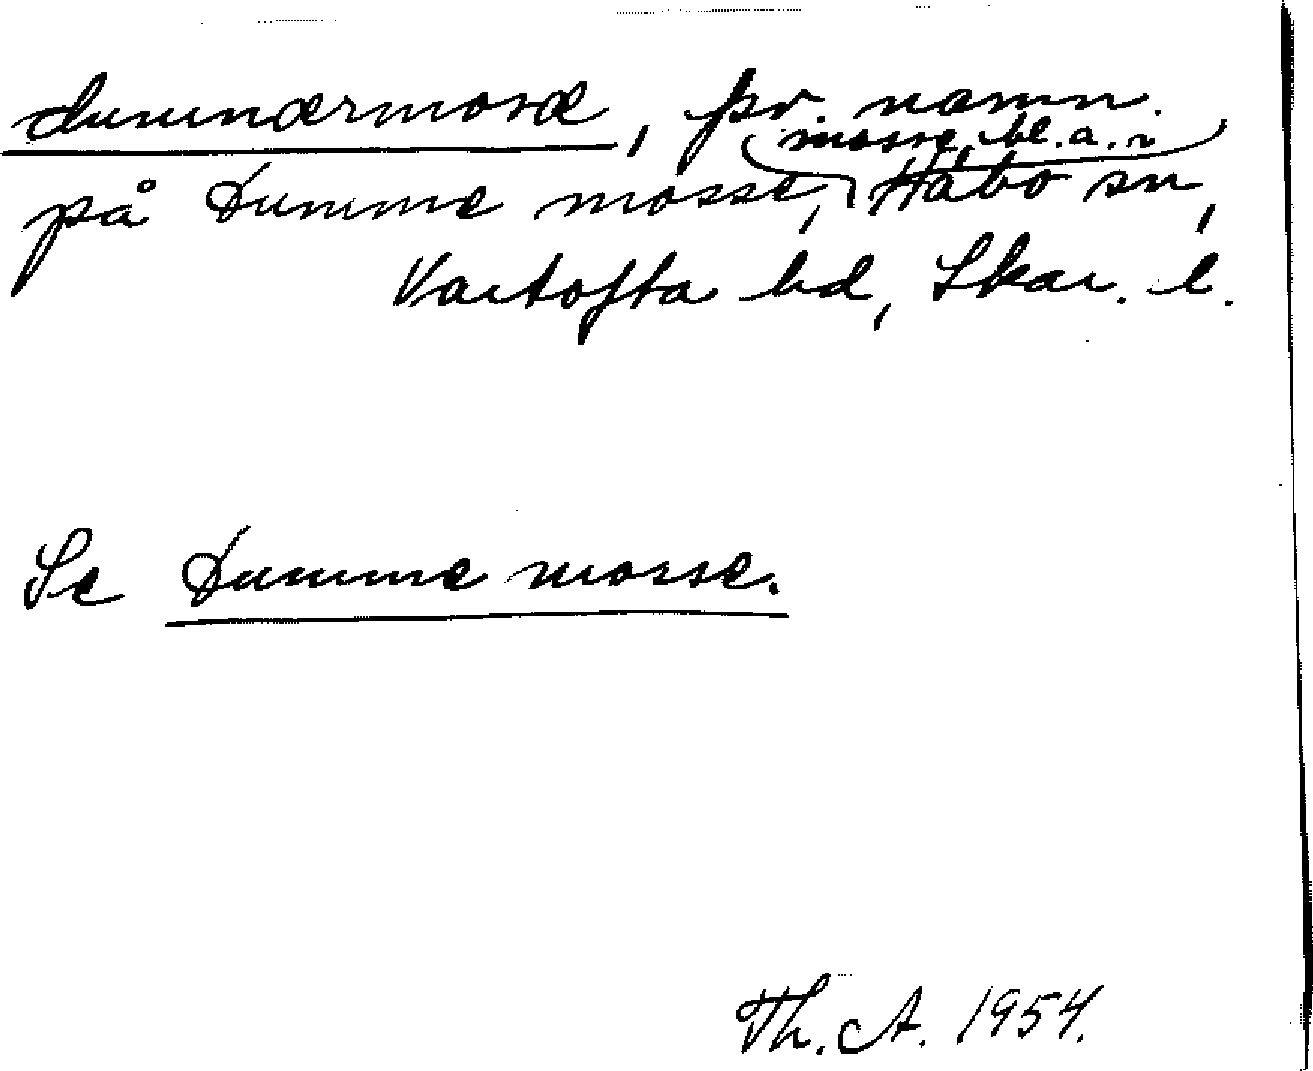 dummærmosæ, pr. namn
på Dumme mosse, mosse, bl. a. i Håbo sn,
Vartofta hd, Skar. l.
Se Dumme mosse.
Th. A. 1954.